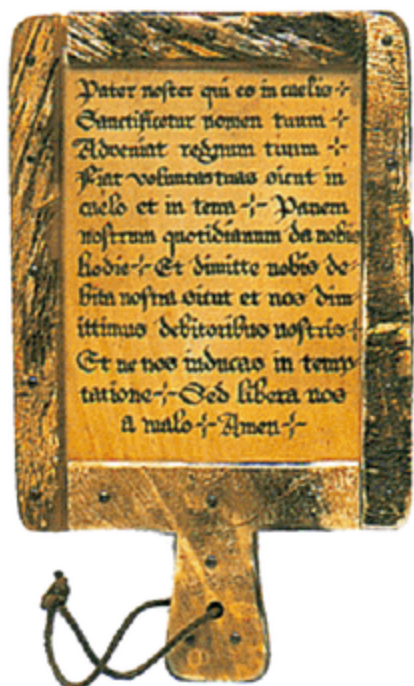 Pater noster qui es in caelis ✢
Sanctificetur nomen tuum ✢
Adveniat regnum tuum ✢
Fiat voluntas tuas sicut in
caelo et in terra ✢ Panem
nostrum quotidianum da nobis
hodie ✢ Et dimitte nobis de-
bita nostra sicut et nos dim-
ittimus debitoribus nostris ✢
Et ne nos inducas in temp-
tatione ✢ Sed libera nos
a malo ✢ Amen ✢